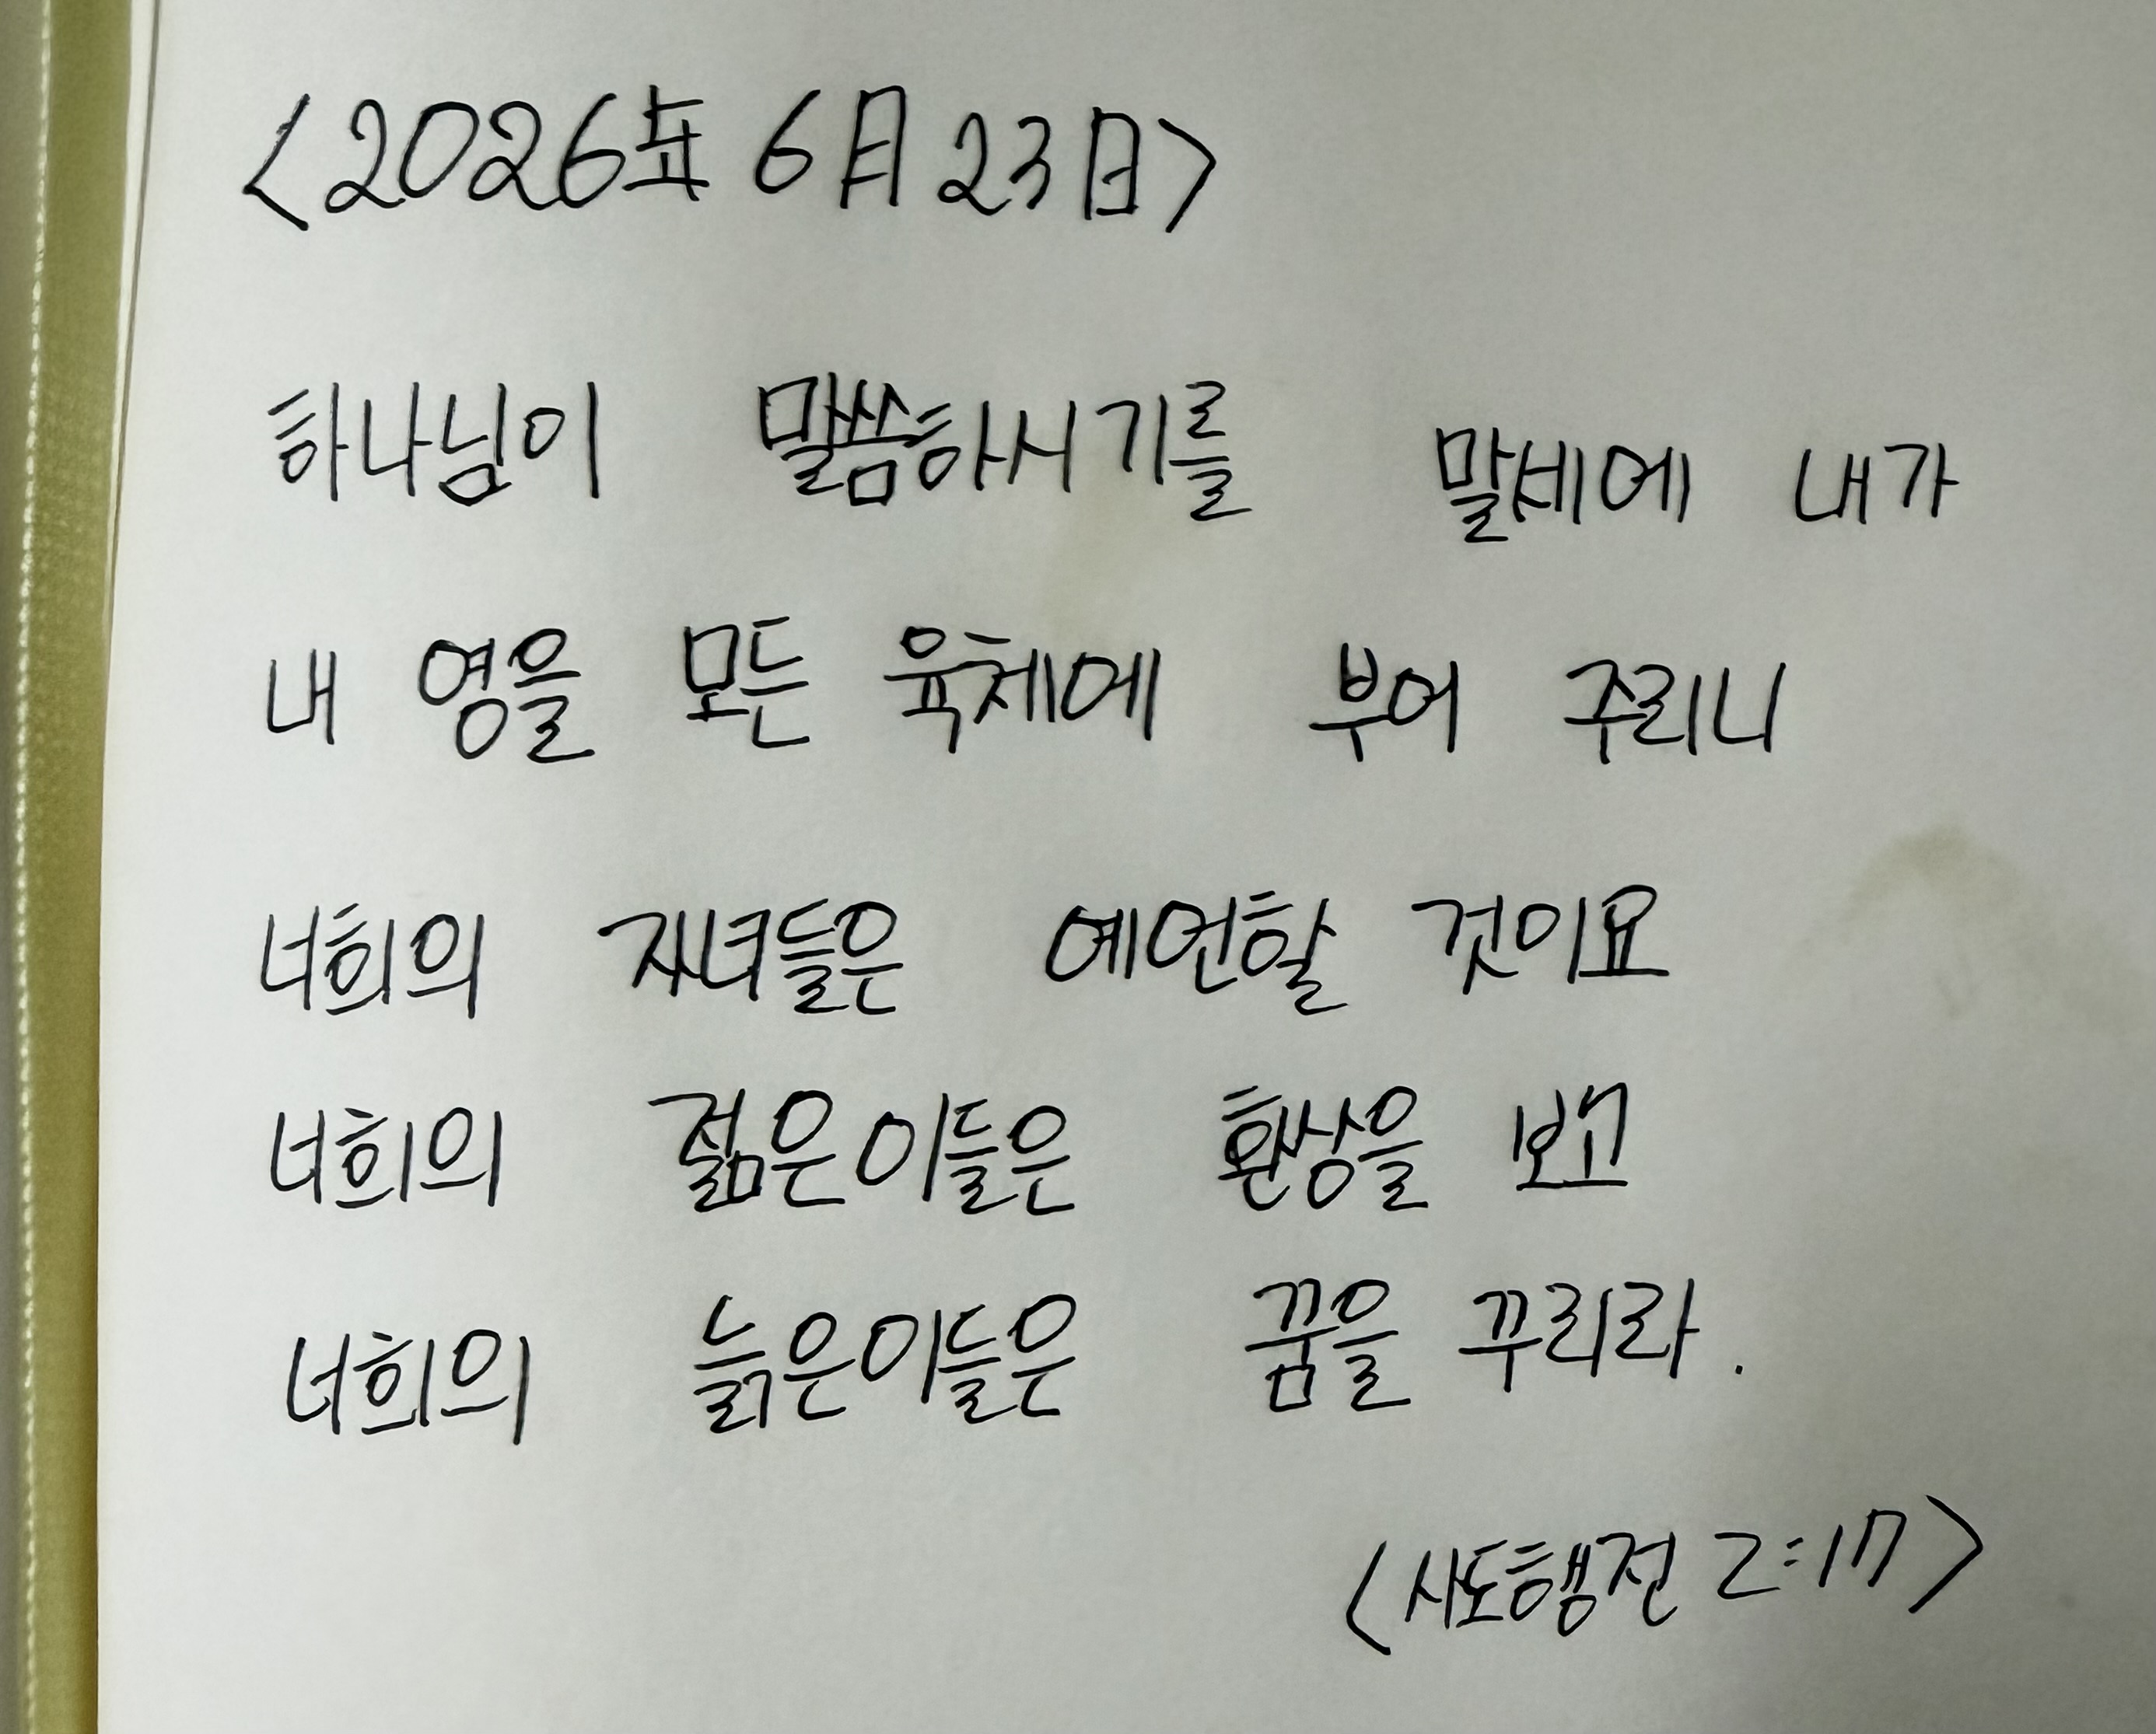 <2026年 6月 23日>
하나님이 말씀하시기를 말세에 내가
내 영을 모든 육체에 부어 주리니
너희의 자녀들은 예언할 것이요
너희의 젊은이들은 환상을 보고
너희의 늙은이들은 꿈을 꾸리라.
<사도행전 2:17>